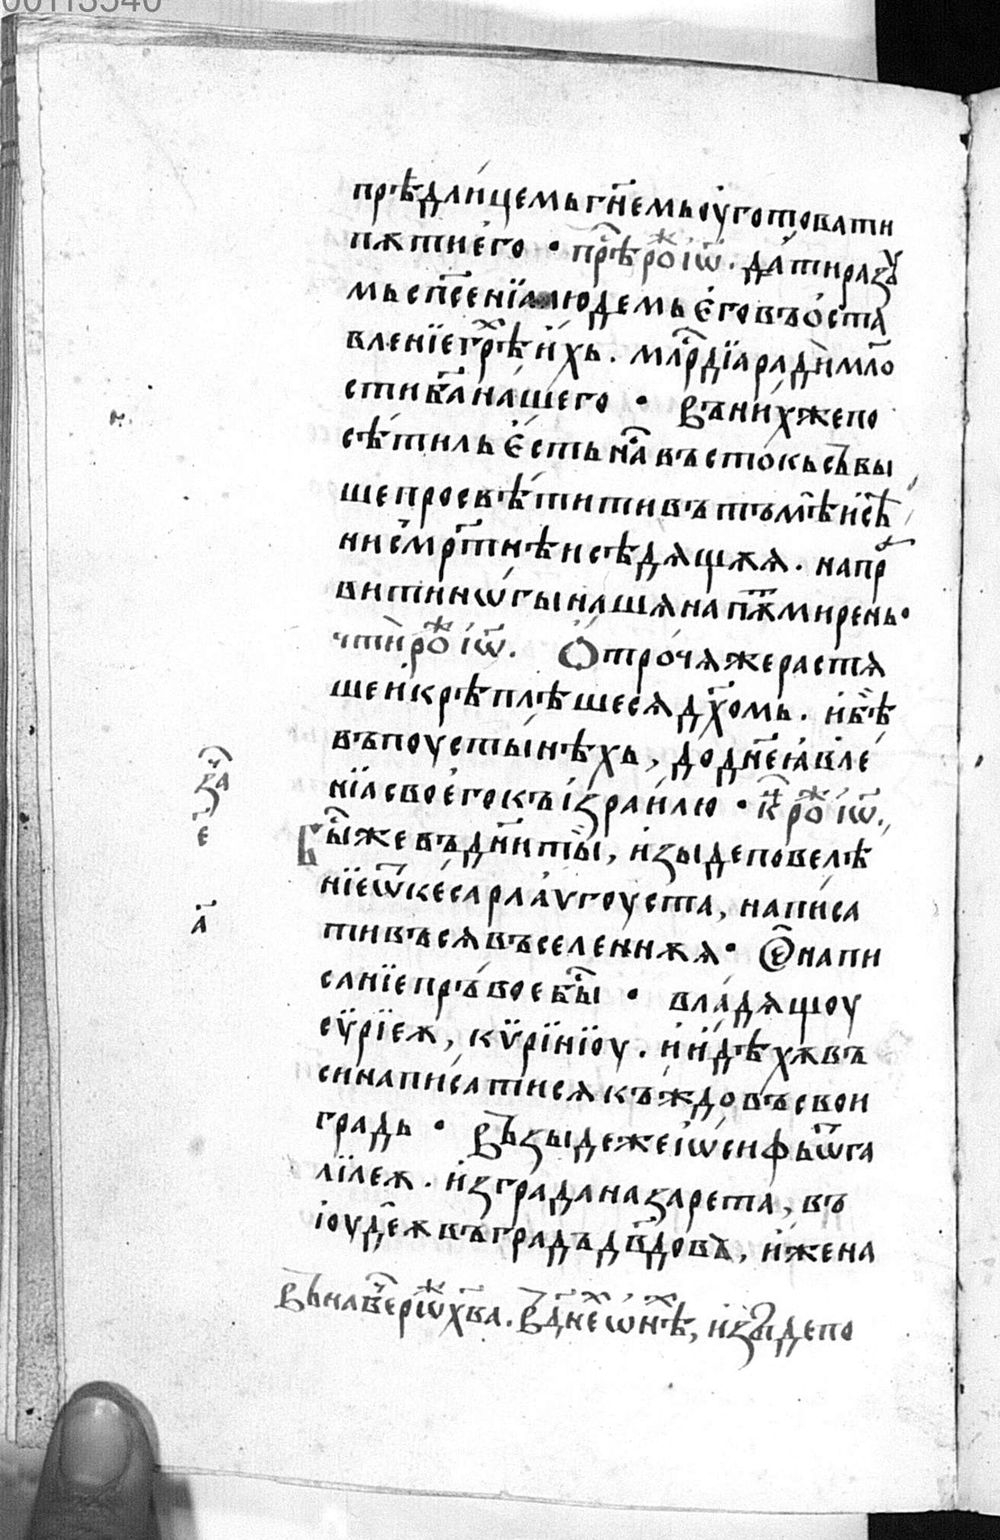 00113540
прѣдлицемь гн҃емь оуготовати
пѫтиего · прѣ рⷤо іѡ҃. да ти разꙋ
мь сп҃сенїа людемь его въ оста
вленїе грѣ их҃ь. млⷭ҇рдїа ради мл҃о
сти б҃а нашего · въ них же по
сѣтиль есть н҃а въстокь съвы
ше просвѣтити въ тъмѣ и сѣ
ни см҃ртнѣи сѣдѧщѫѧ. напр
вити ногы нашѧ на пѫ҃ мирень·
чти рⷤо іѡ҃. Отрочѧ же растѧ
ше и крѣплѣшесѧ д҃хомь. и бѣ҃
въ поустыинѣхь, до дн҃е ꙗвле
нїа своего къ ізраилю · к҃ рⷤо іѡ҃.
Бы҃ же въ дн҃и ты, изыде повелѣ
нїе ѿ кесарꙗ аѵгоуста, написа
ти въсѧ въселеннѫѧ · Се напи
санїе пръвое бы҃ · владѧщоу
сѵрїеѫ, кѵринїоу. и идѣхѫ въ
си написатисѧ къждо въ свои
градь · Възыде же іѡсифь ѿ га
лїлеѫ. из града назарета, въ
іоудеѫ въ градъ дв҃довъ, иже на
з҃а
е҃
а҃
Въ нав҃ерїѡ рⷤхв҃а. В дн҃е ѡнѣ, изыде по